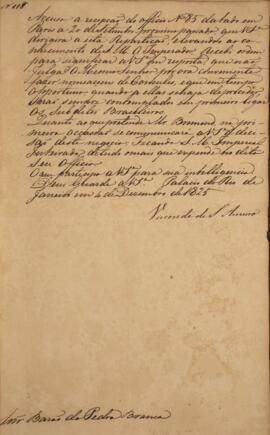 Nº 118
Accuso a recepção do officio Nº 75 datado em
Paris a 20 de Setembro proximo passado que V Sª
dirigira a esta Repartição, e levando-o ao co
nhecimento de S. M. O Imperador Recebi ordem
para significar a V Sª em resposta que não
julga O Mesmo Senhor por ora conveniente
fazer nomeações de Consules, e que em tempo
opportuno quando a ellas se haja de proceder,
serão sempre contemplados em primeiro lugar
os Subditos Brasileiros.
Quanto ao que pretende Mr. na pri
meira occasião se communicará a V Sª a deci
são deste negocio: Ficando S. M. Imperial
Inteirado de tudo o mais que expende no dito
seu Officio.
O que participo a V Sª para sua intelligencia
Deus Guarde a V Sª Palacio do Rio de
Janeiro em 4 de Dezembro de 1825
Visconde de S. Amaro
Snr Barão da Pedra Branca